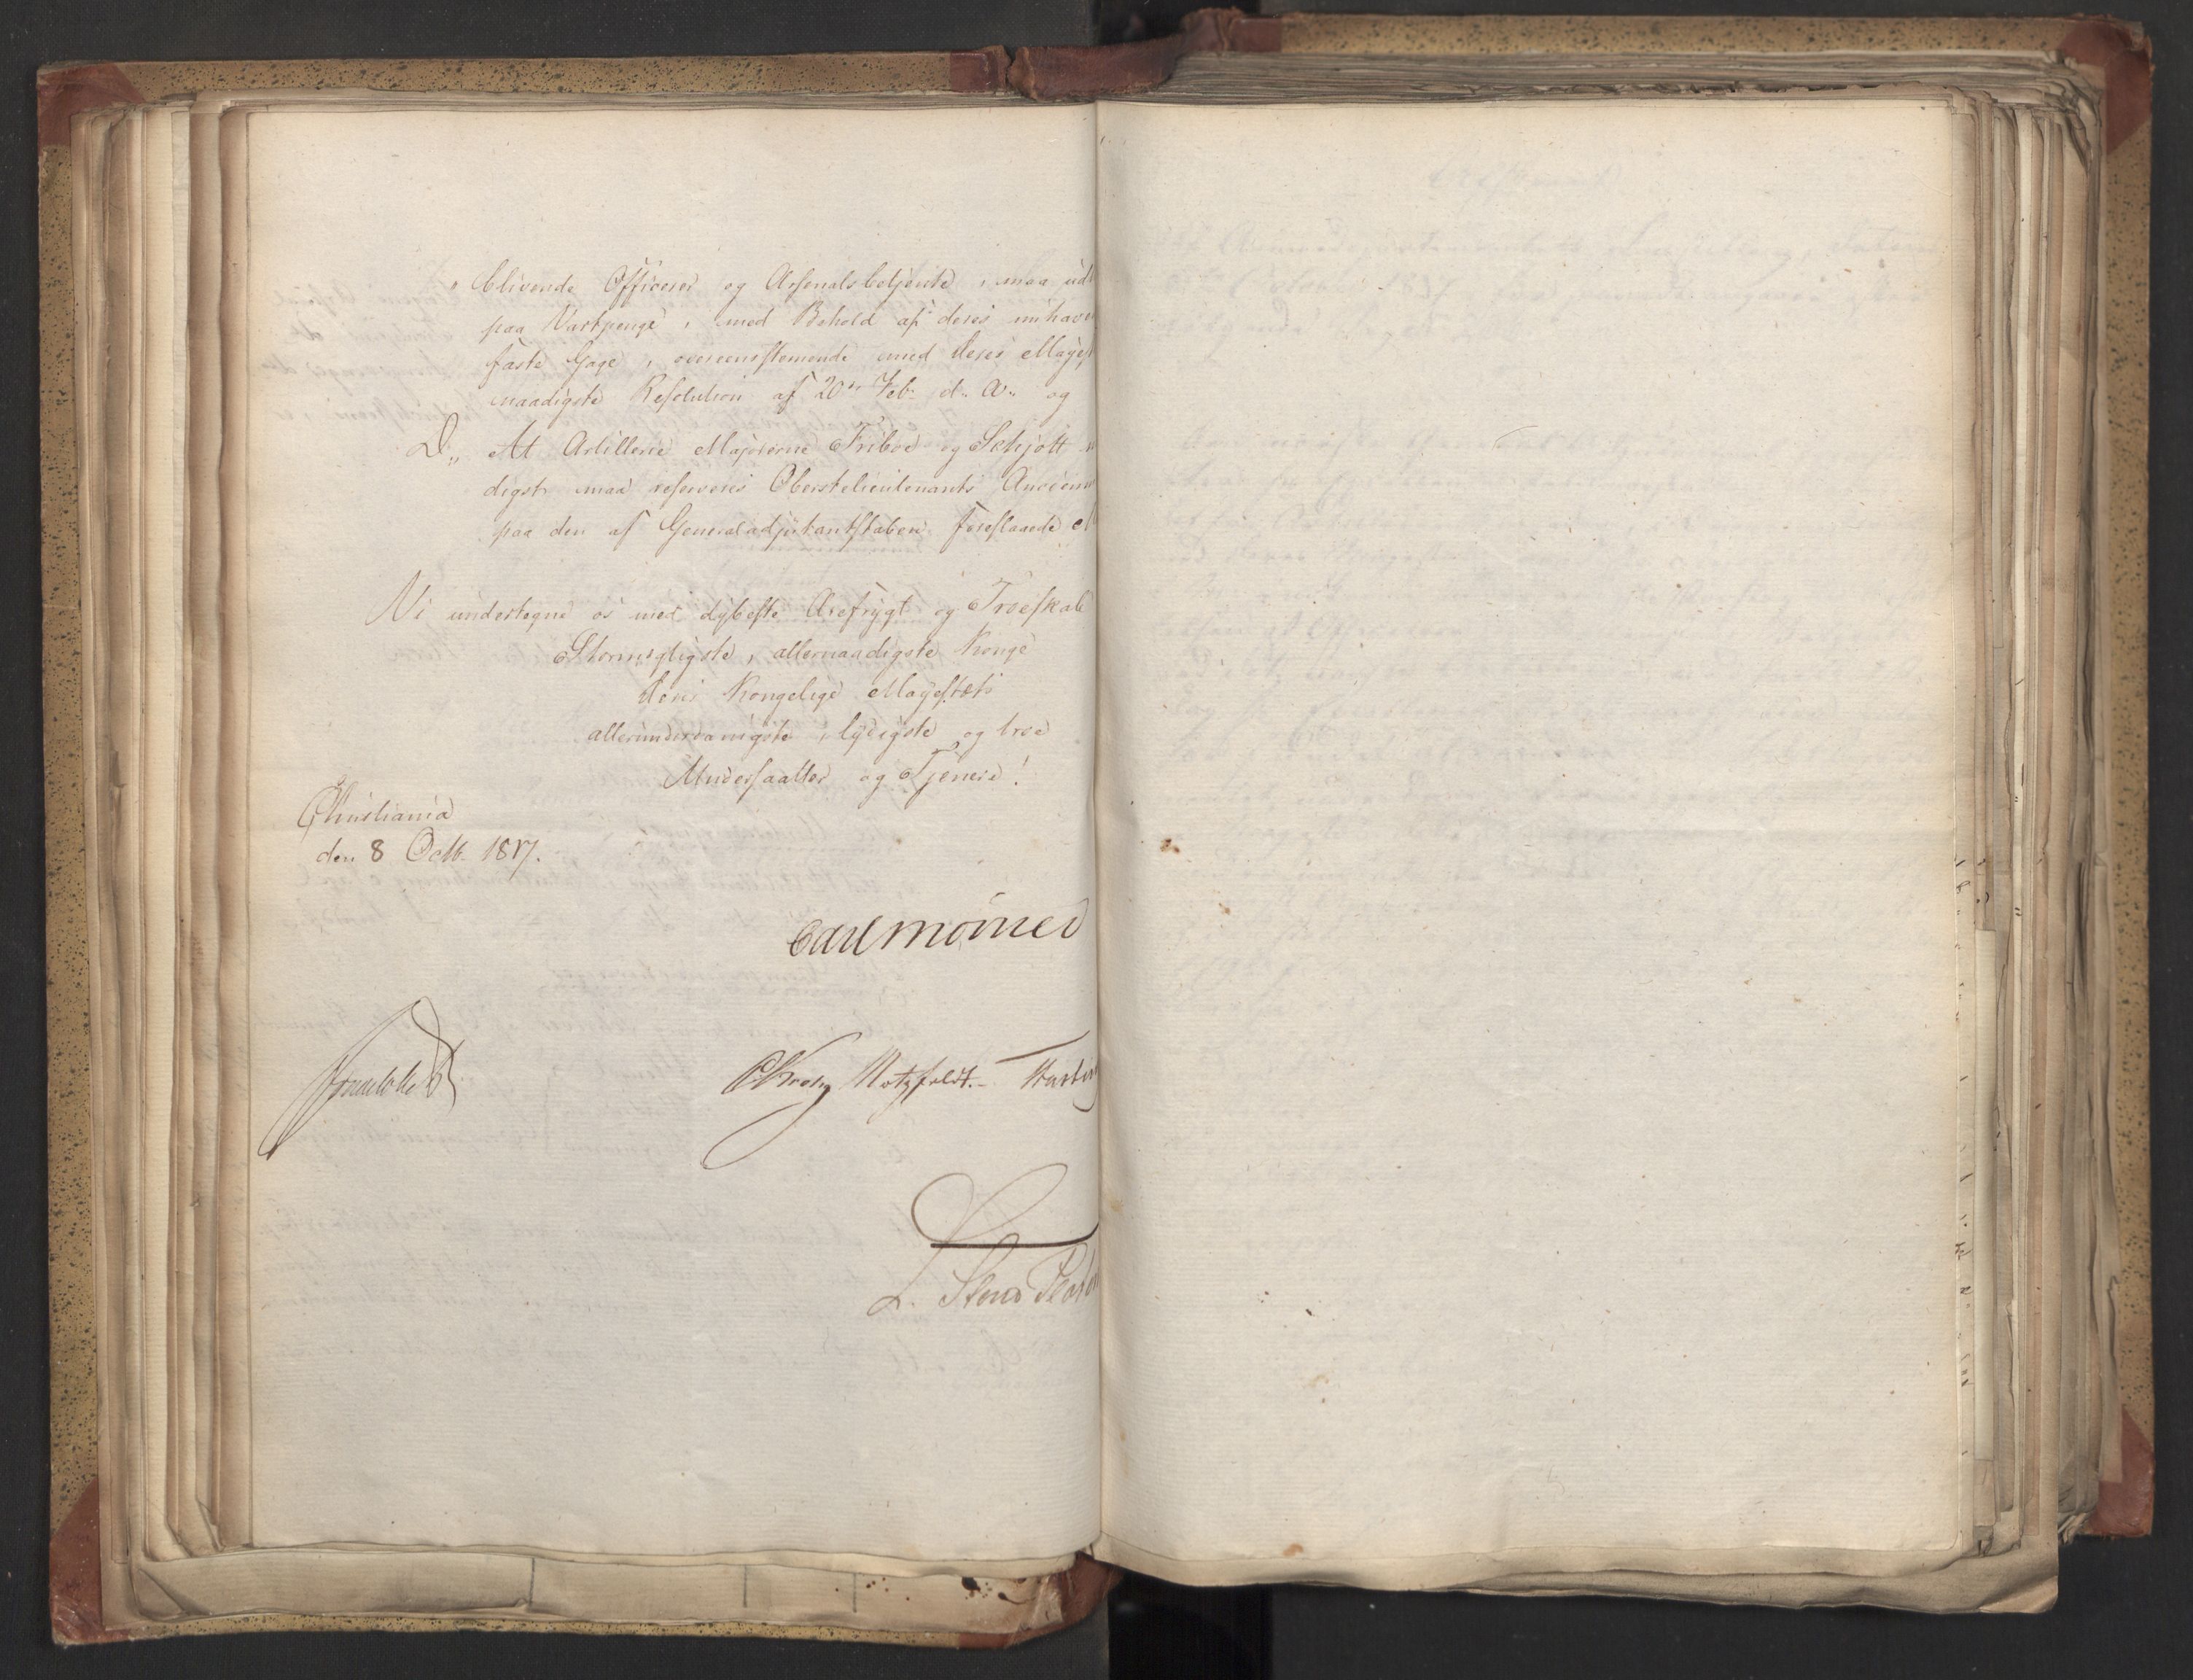 " blivende Officerer og Arsenalsbetjente, maa ud
paa Vartpenge, med Behold af deres nuhave
faste Gage, overeensstemmende med Deres Majest
naadigste Resolution af 20de Feb. d. A. og
D,, At Artillerie Majorerne Friboe og Schjøtt
digst maa reserveres Oberstelieutenants Ancienn
paa den af Generaladjutantstaben foreslaaede
Vi undertegne os med dybeste Ærefrygt og Troeskab
Stormægtigste, allernaadigste Konge
Deres Kongelige Majestæts
allerunderdanigste, lydigste og troe
Undersaatter og Tjenere!
Christiania
den 8 Octb. 1817.
Carl Mörner
Krog Motzfeldt.